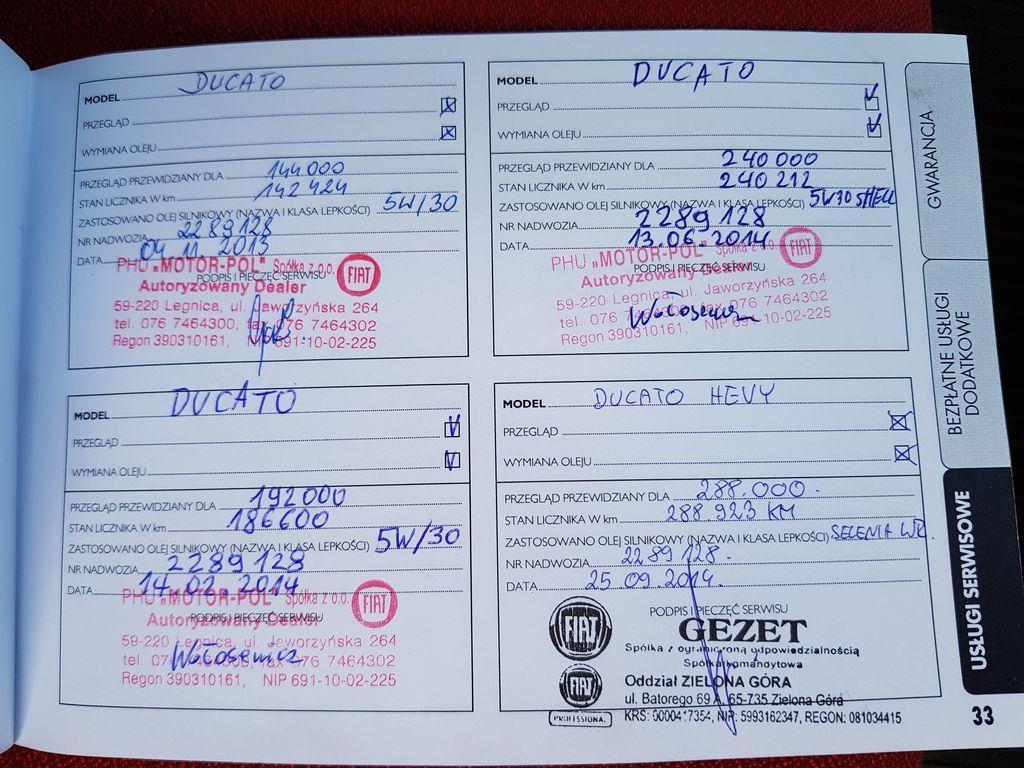 MODEL DUCATO
PRZEGLĄD
WYMIANA OLEJU
PRZEGLĄD PRZEWIDZIANY DLA 144 000
STAN LICZNIKA W km 142 424
ZASTOSOWANO OLEJ SILNIKOWY (NAZWA I KLASA LEPKOŚCI) 5W/30
NR NADWOZIA 2289128
DATA 04 11. 2013
PODPIS I PIECZĘĆ SERWISU
PHU „MOTOR-POL" Spółka z o.o. FIAT
Autoryzowany Dealer
59-220 Legnica, ul. Jaworzyńska 264
tel. 076 7464300, fax 076 7464302
Regon 390310161, NIP 691-10-02-225
MODEL DUCATO
PRZEGLĄD
WYMIANA OLEJU
PRZEGLĄD PRZEWIDZIANY DLA 192000
STAN LICZNIKA W km 186600
ZASTOSOWANO OLEJ SILNIKOWY (NAZWA I KLASA LEPKOŚCI) 5W/30
NR NADWOZIA 2289128
DATA 14.02.2014
PODPIS I PIECZĘĆ SERWISU
PHU „MOTOR-POL" Spółka z o.o. FIAT
Autoryzowany Dealer
59-220 Legnica, ul. Jaworzyńska 264
tel. 076 7464302
Regon 390310161, NIP 691-10-02-225
MODEL DUCATO
PRZEGLĄD
WYMIANA OLEJU
PRZEGLĄD PRZEWIDZIANY DLA 240 000
STAN LICZNIKA W km 240 212
ZASTOSOWANO OLEJ SILNIKOWY (NAZWA I KLASA LEPKOŚCI) 5W30 SHELL
NR NADWOZIA 2289128
DATA 13.06.2014
PODPIS I PIECZĘĆ SERWISU
PHU „MOTOR-POL" Spółka z o.o. FIAT
Autoryzowany Dealer
59-220 Legnica, ul. Jaworzyńska 264
tel. 076 7464300, fax 076 7464302
Regon 390310161, NIP 691-10-02-225
MODEL DUCATO HEVY
PRZEGLĄD
WYMIANA OLEJU
PRZEGLĄD PRZEWIDZIANY DLA 288.000.
STAN LICZNIKA W km 288.923 KM
ZASTOSOWANO OLEJ SILNIKOWY (NAZWA I KLASA LEPKOŚCI) SELENIA
NR NADWOZIA 2289128.
DATA 25.09.2014.
PODPIS I PIECZĘĆ SERWISU
FIAT GEZET
Spółka z ograniczoną odpowiedzialnością
Spółka komandytowa
FIAT Oddział ZIELONA GÓRA
ul. Batorego 69 A, 65-735 Zielona Góra
PROFESSIONAL KRS: 0000417354, NIP: 5993162347, REGON: 081034415
GWARANCJA
BEZPŁATNE USŁUGI
DODATKOWE
USŁUGI SERWISOWE
33